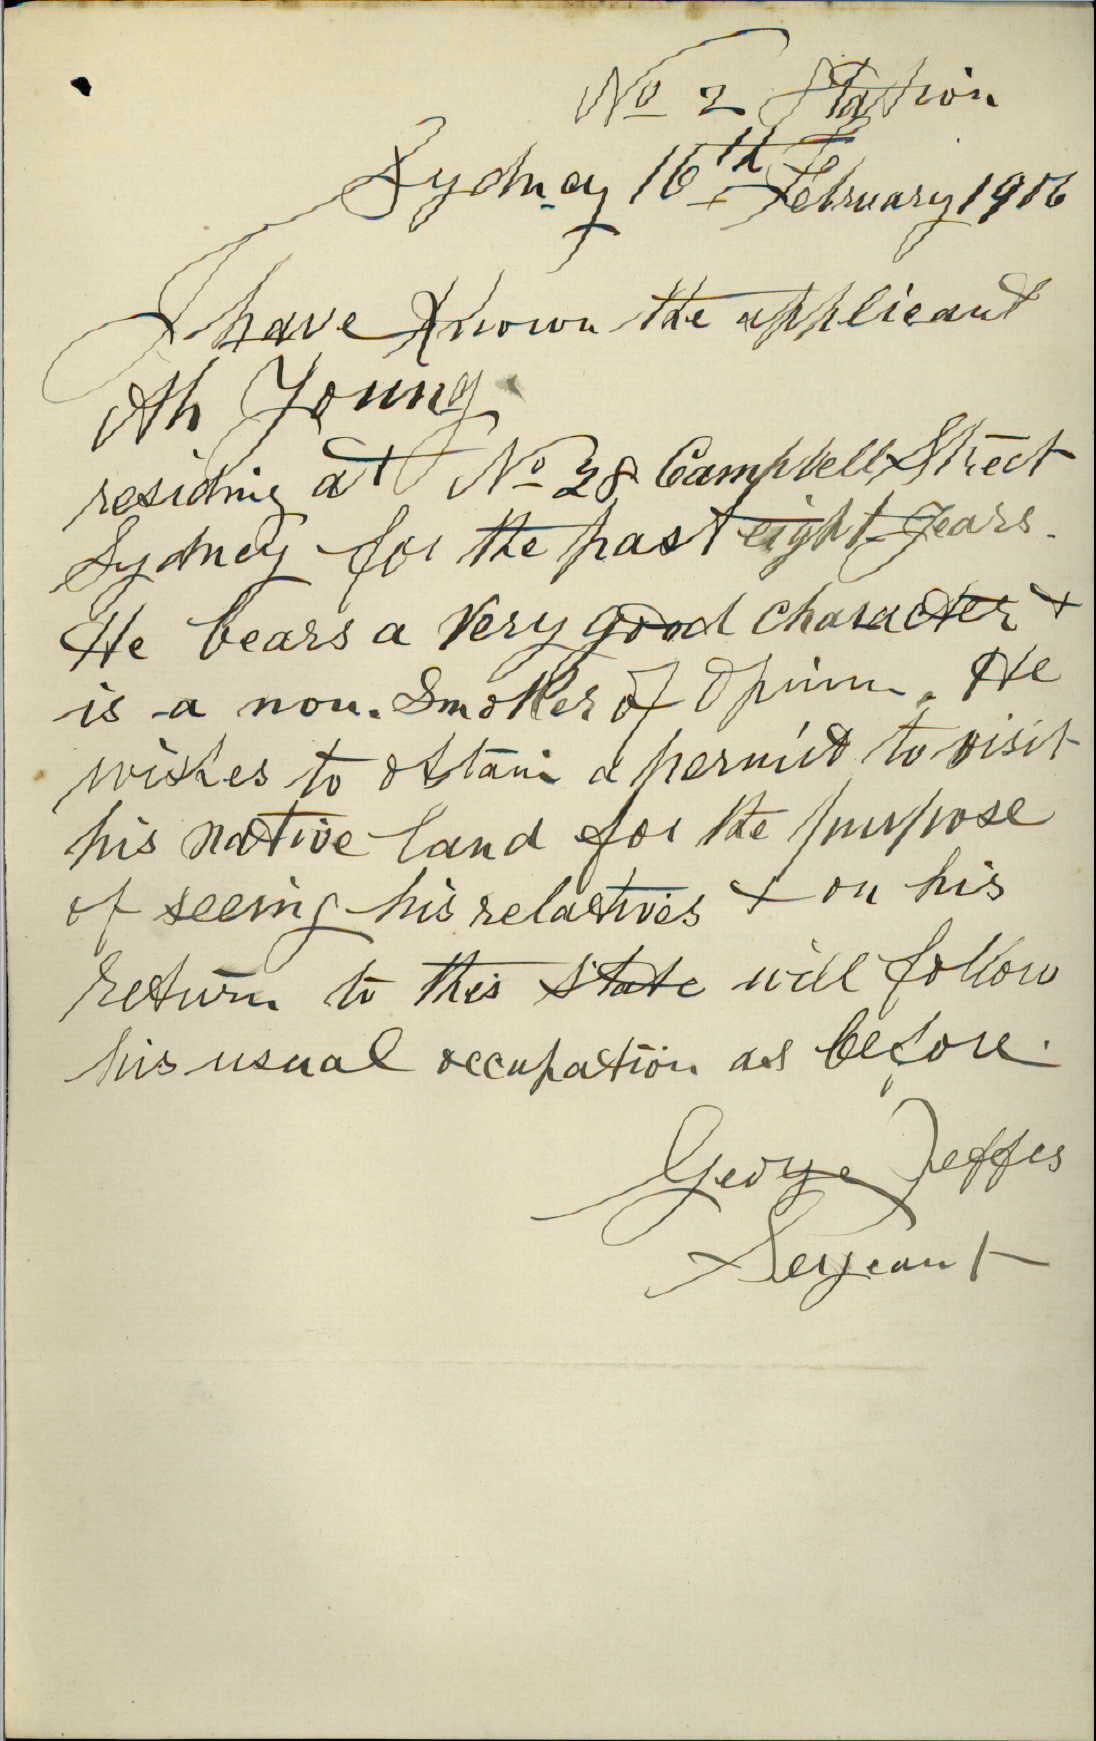 No 2 Station
Sydney 16th February 1916
I have known the applicant
Ah Young
residing at No 28 Campbell Street
Sydney for the past eight years.
He bears a very good character &
is a non. Smoker of Opium. He
wishes to obtain a permit to visit
his native land for the purpose
of seeing his relatives & on his
return to this state will follow
his usual occupation as before.
George Jeffes
Sergeant